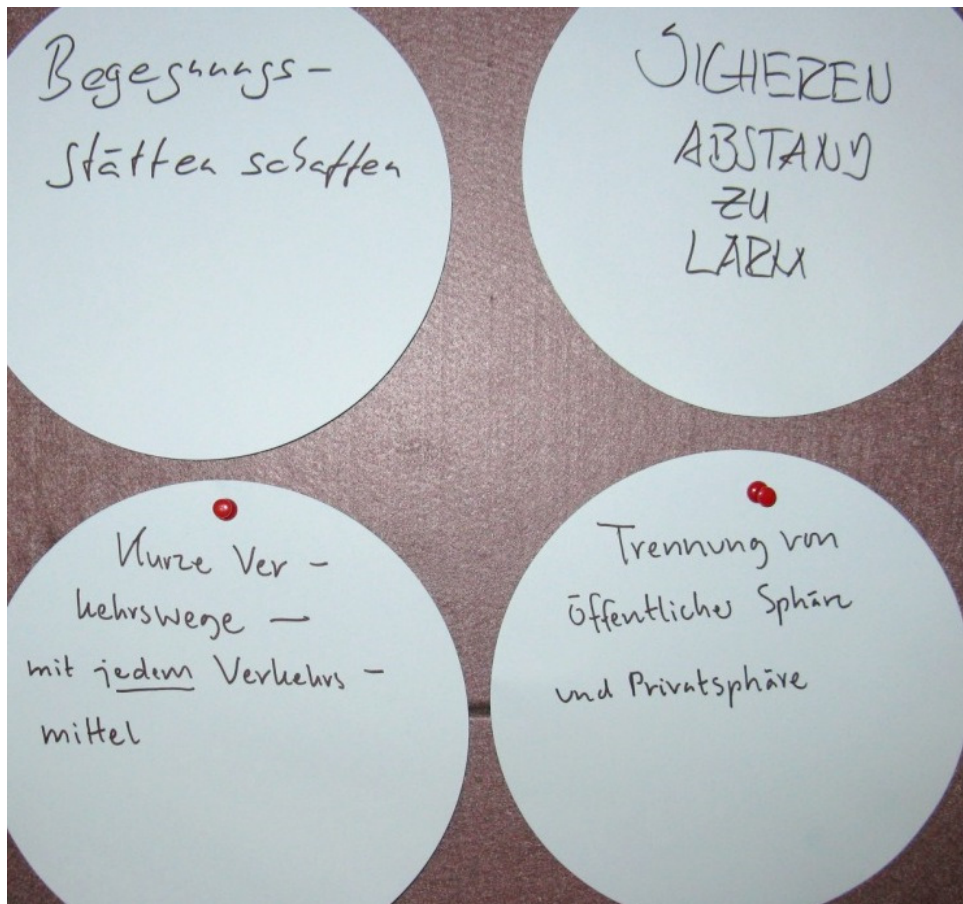 Begegnungs-
stätten schaffen
SICHEREN
ABSTAND
ZU
LÄRM
Kurze Ver-
kehrswege —
mit jedem Verkehrs-
mittel
Trennung von
öffentlicher Sphäre
und Privatsphäre